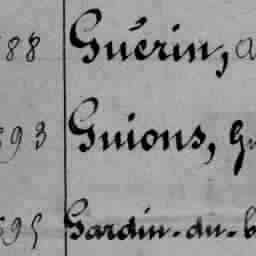 88 Guérin, a
893 Guions, G
895 Gardin-du-b